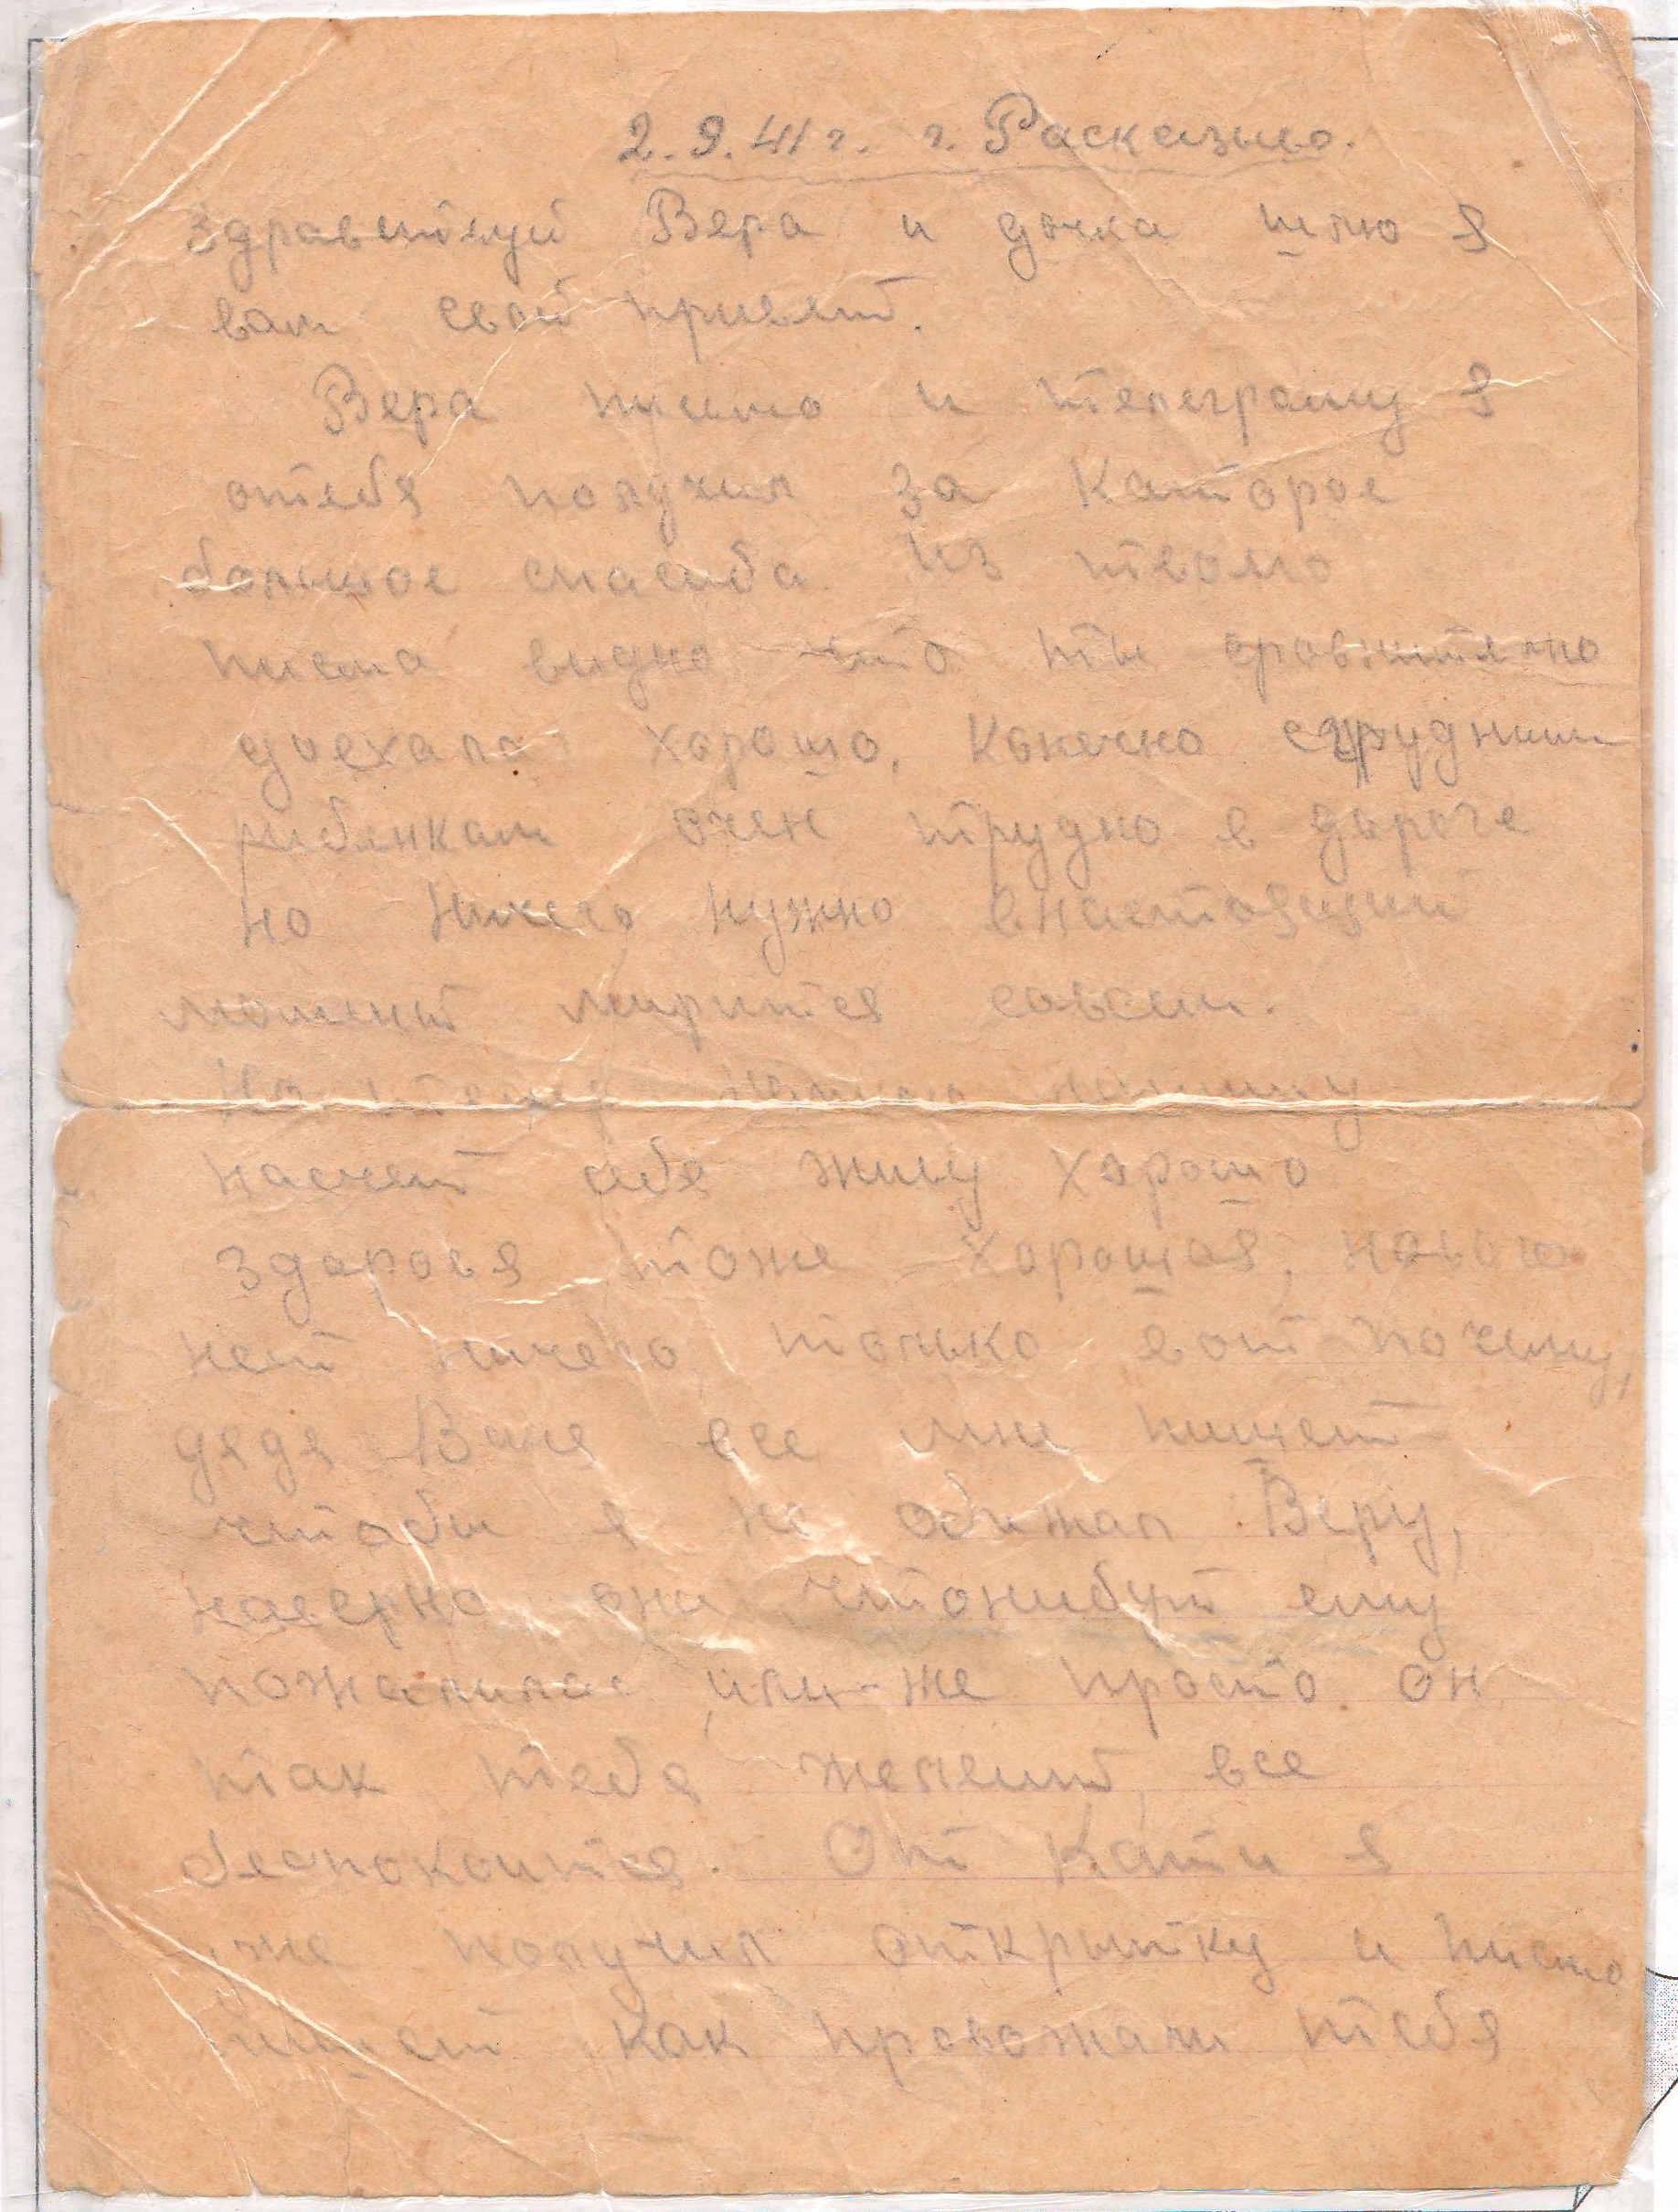 2.9.41 г. г. Расказыво.
Здравствуй Вера и дочка шлю я
вам свой привет.
Вера писмо и телеграму я
отебя получил за каторое
большое спасиба. Из твоего
писма видно что ты сравнително
доехала хорошо, конечно с грудным
рибёнкам очен трудно в дороге
но ничего нужно внастоящий
момент мирится совсем.
Но теперь немного напишу
насчет себя живу хорошо
здоровя тоже хорошая, новога
нет ничего, только вот почему,
дядя Ваня все мне пишет
чтобы я не обижал Веру,
наверно она чтонибуть ему
пожалилас, или-же просто он
так тебя жалеит, все
беспокоится. От Кати я
уже получил открытку и писмо
пишет как правожали тебя